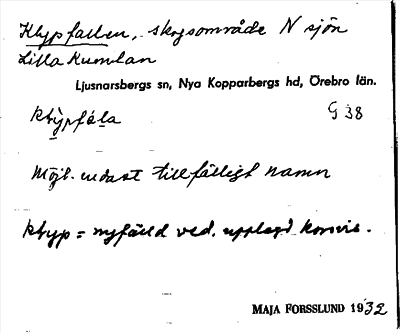 Klypfallen, skogsområde N sjön
Lilla Kumlan
Ljusnarsbergs sn, Nya Kopparbergs hd, Örebro län.
klỳpfála G 38
Möjl. endast tillfälligt namn
klyp = nyfälld ved, upplagd korsvis.
MAJA FORSSLUND 1932